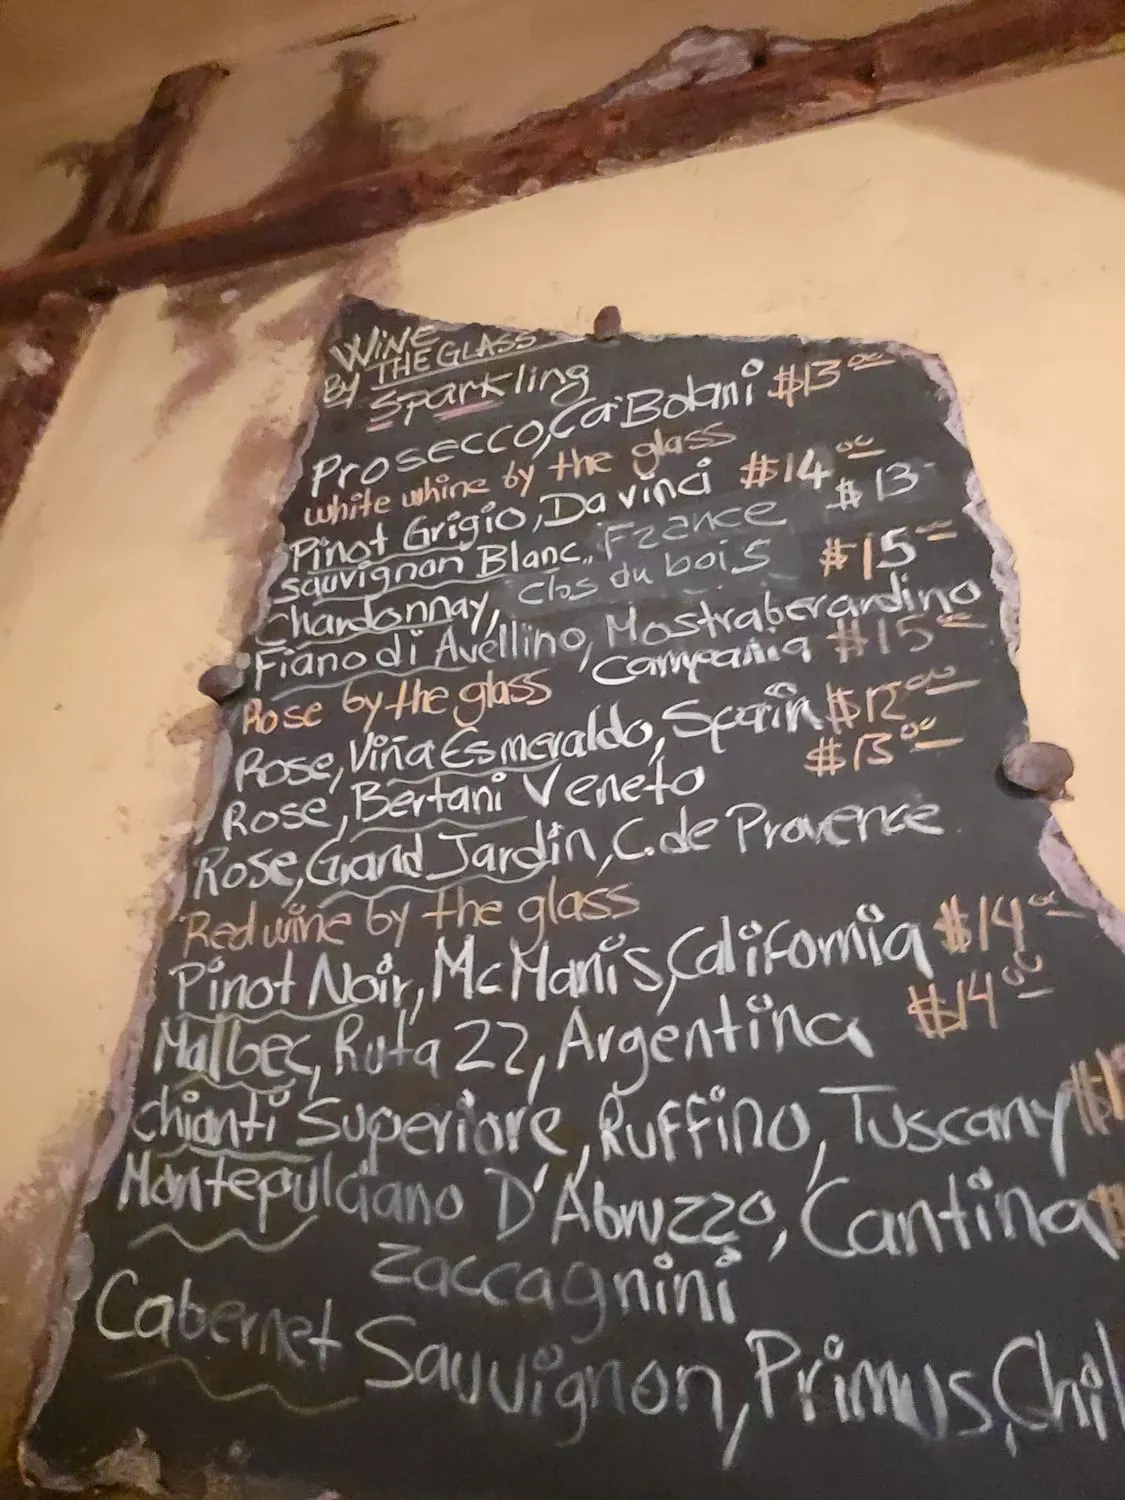 WINE
BY THE GLASS
Sparkling
Prosecco, Ca'Bolani $13.00
white whine by the glass
Pinot Grigio, Da vinci $14.00
sauvignon Blanc, France $13
Chardonnay, Clos du bois $15
Fiano di Avellino, Mostraberardino
Campania $15
Rose by the glass
Rose, Viña Esmeraldo, Spain $12.00
Rose, Bertani Veneto $13.00
Rose, Grand Jardin, C. de Provence
Red wine by the glass
Pinot Noir, McManis, California $14.00
Malbec, Ruta 22, Argentina $14.00
Chianti Superiore, Ruffino, Tuscany $1
Montepulciano D'Abruzzo, Cantina
Zaccagnini
Cabernet Sauvignon, Primus, Chil